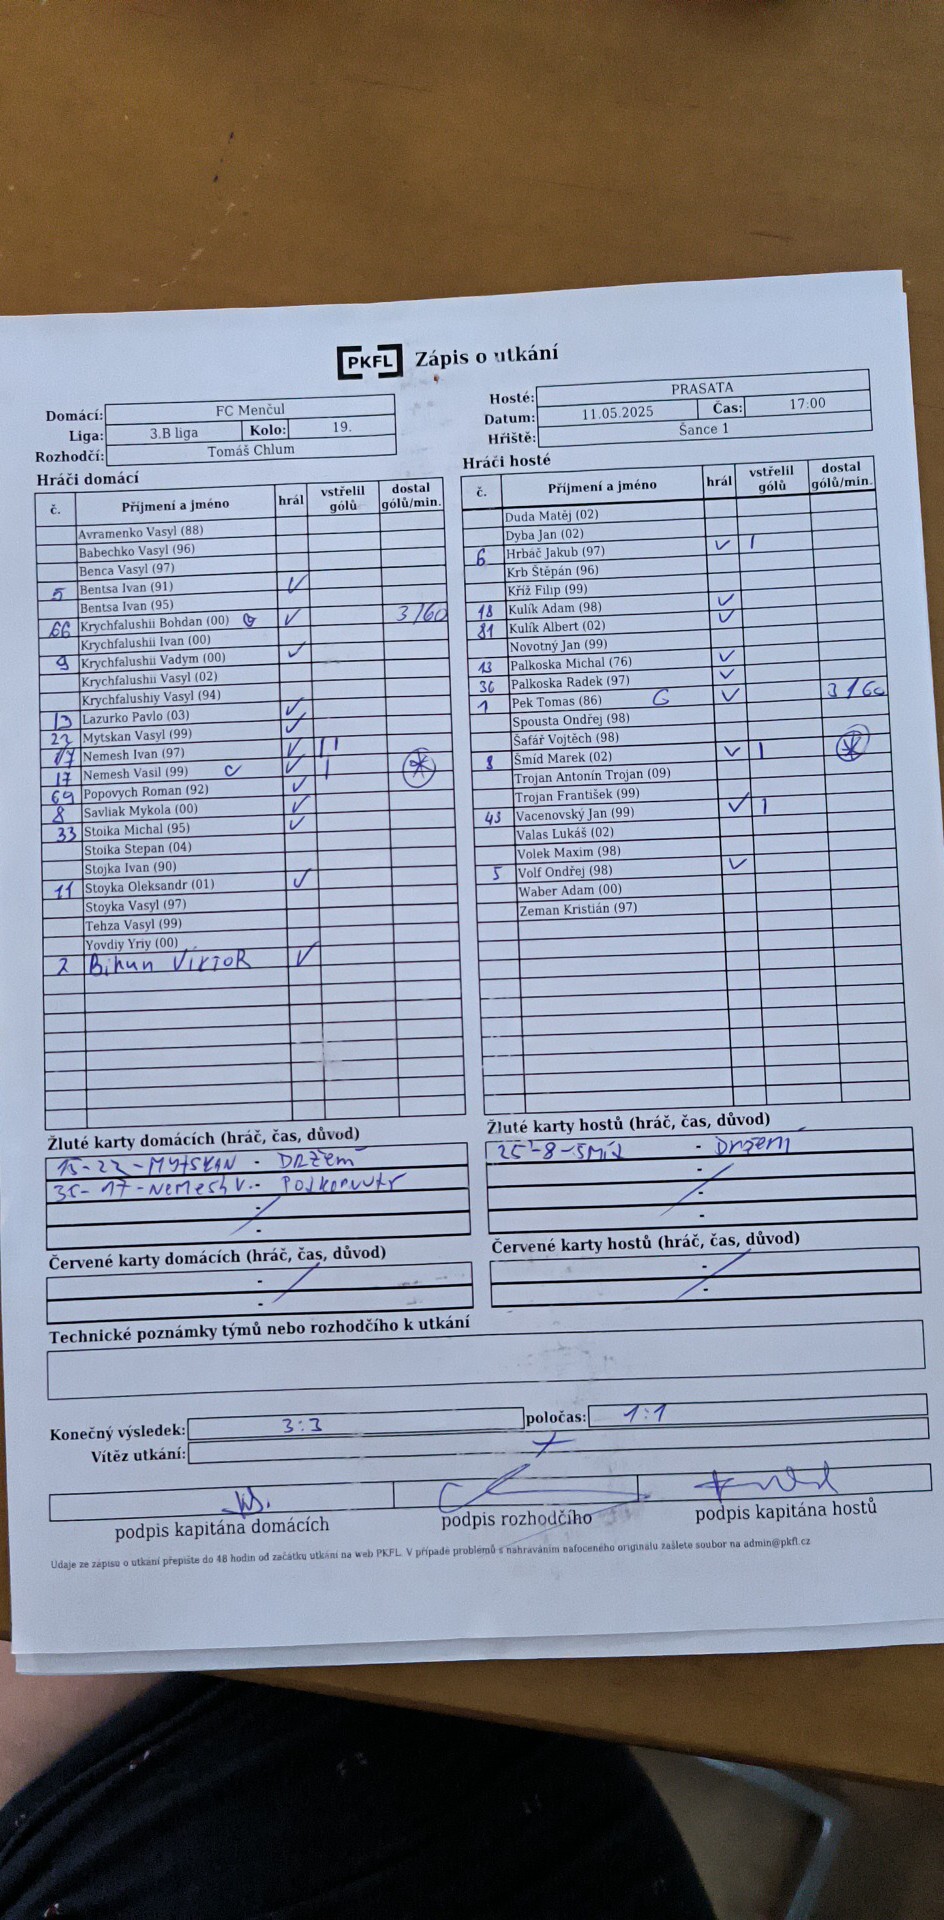 PKFL Zápis o utkání
Domácí: FC Menčul
Liga: 3.B liga Kolo: 19.
Rozhodčí: Tomáš Chlum
Hosté: PRASATA
Datum: 11.05.2025 Čas: 17:00
Hřiště: Šance 1
Hráči domácí
č. Příjmení a jméno hrál vstřelil gólů dostal gólů/min.
Avramenko Vasyl (88)
Babechko Vasyl (96)
Benca Vasyl (97)
5 Bentsa Ivan (91) ✓
Bentsa Ivan (95)
66 Krychfalushii Bohdan (00) G ✓ 3/60
Krychfalushii Ivan (00)
9 Krychfalushii Vadym (00) ✓
Krychfalushii Vasyl (02)
Krychfalushiy Vasyl (94)
13 Lazurko Pavlo (03) ✓
22 Mytskan Vasyl (99) ✓
Nemesh Ivan (97) ✓ 11
17 Nemesh Vasil (99) C ✓ 1 *
69 Popovych Roman (92) ✓
8 Savliak Mykola (00) ✓
33 Stoika Michal (95) ✓
Stoika Stepan (04)
Stojka Ivan (90)
11 Stoyka Oleksandr (01) ✓
Stoyka Vasyl (97)
Tehza Vasyl (99)
Yovdiy Yriy (00)
2 Bihun VIKTOR ✓
Hráči hosté
č. Příjmení a jméno hrál vstřelil gólů dostal gólů/min.
Duda Matěj (02)
Dyba Jan (02)
6 Hrbáč Jakub (97) ✓ 1
Krb Štěpán (96)
Kříž Filip (99)
18 Kulík Adam (98) ✓
81 Kulík Albert (02) ✓
Novotný Jan (99)
13 Palkoska Michal (76) ✓
36 Palkoska Radek (97) ✓
1 Pek Tomas (86) G ✓ 3/60
Spousta Ondřej (98)
Šafář Vojtěch (98)
8 Šmíd Marek (02) ✓ 1 *
Trojan Antonín Trojan (09)
Trojan František (99)
43 Vacenovský Jan (99) ✓ 1
Valas Lukáš (02)
Volek Maxim (98)
5 Volf Ondřej (98) ✓
Waber Adam (00)
Zeman Kristián (97)
Žluté karty domácích (hráč, čas, důvod)
15-22-MYTSKAN - DRŽENÍ
35-17-NEMESH V.-
-
-
Žluté karty hostů (hráč, čas, důvod)
25-8-ŠMÍD - DRŽENÍ
-
-
-
Červené karty domácích (hráč, čas, důvod)
-
-
Červené karty hostů (hráč, čas, důvod)
-
-
Technické poznámky týmů nebo rozhodčího k utkání
Konečný výsledek: 3:3 poločas: 1:1
Vítěz utkání:
podpis kapitána domácích podpis rozhodčího podpis kapitána hostů
Údaje ze zápisu o utkání přepište do 48 hodin od začátku utkání na web PKFL. V případě problémů s nahráváním nafoceného originálu zašlete soubor na admin@pkfl.cz